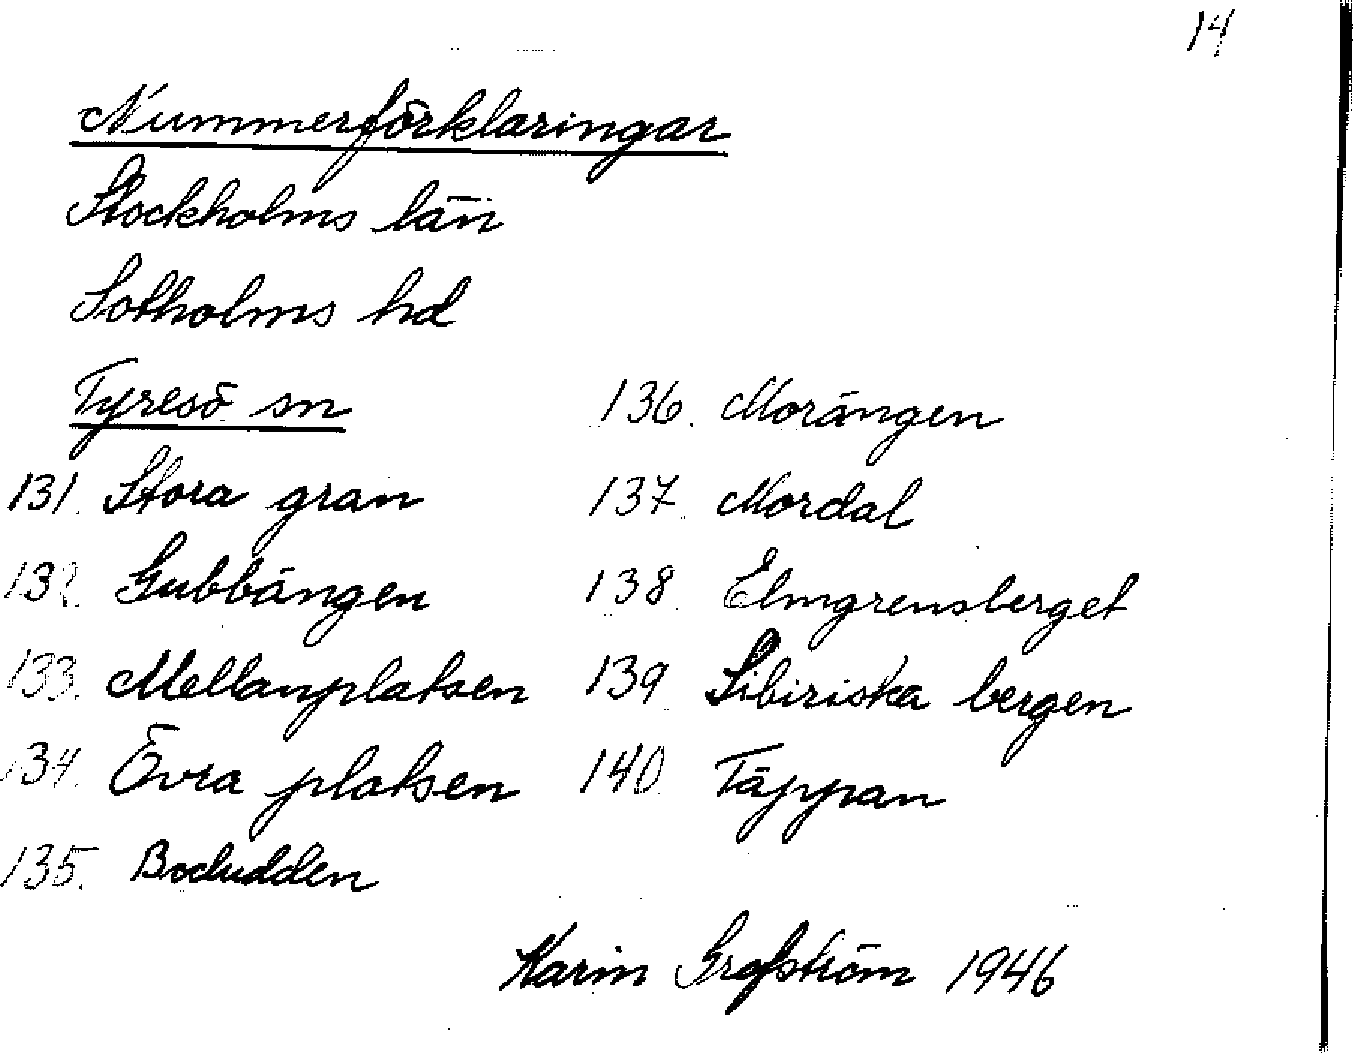 14
Nummerförklaringar
Stockholms län
Sotholms hd
Tyresö sn
131. Stora gran
132. Gubbängen
133. Mellanplatsen
134. Övra platsen
135. Bodudden
136. Morängen
137. Mordal
138. Elmgrensberget
139. Sibiriska bergen
140. Täppan
Karin Grafström 1946